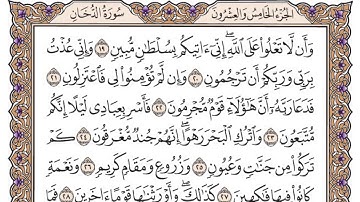 الجزء الخامس والعشرون
سورة الدخان
وَأَن لَّا تَعْلُوا۟ عَلَى ٱللَّهِ ۖ إِنِّىٓ ءَاتِيكُم بِسُلْطَـٰنٍ مُّبِينٍ ١٩ وَإِنِّى عُذْتُ
بِرَبِّى وَرَبِّكُمْ أَن تَرْجُمُونِ ٢٠ وَإِن لَّمْ تُؤْمِنُوا۟ لِى فَٱعْتَزِلُونِ ٢١
فَدَعَا رَبَّهُۥٓ أَنَّ هَـٰٓؤُلَآءِ قَوْمٌ مُّجْرِمُونَ ٢٢ فَأَسْرِ بِعِبَادِى لَيْلًا إِنَّكُم
مُّتَّبَعُونَ ٢٣ وَٱتْرُكِ ٱلْبَحْرَ رَهْوًا ۖ إِنَّهُمْ جُندٌ مُّغْرَقُونَ ٢٤ كَمْ
تَرَكُوا۟ مِن جَنَّـٰتٍ وَعُيُونٍ ٢٥ وَزُرُوعٍ وَمَقَامٍ كَرِيمٍ ٢٦ وَنَعْمَةٍ
كَانُوا۟ فِيهَا فَـٰكِهِينَ ٢٧ كَذَٰلِكَ ۖ وَأَوْرَثْنَـٰهَا قَوْمًا ءَاخَرِينَ ٢٨ فَمَا